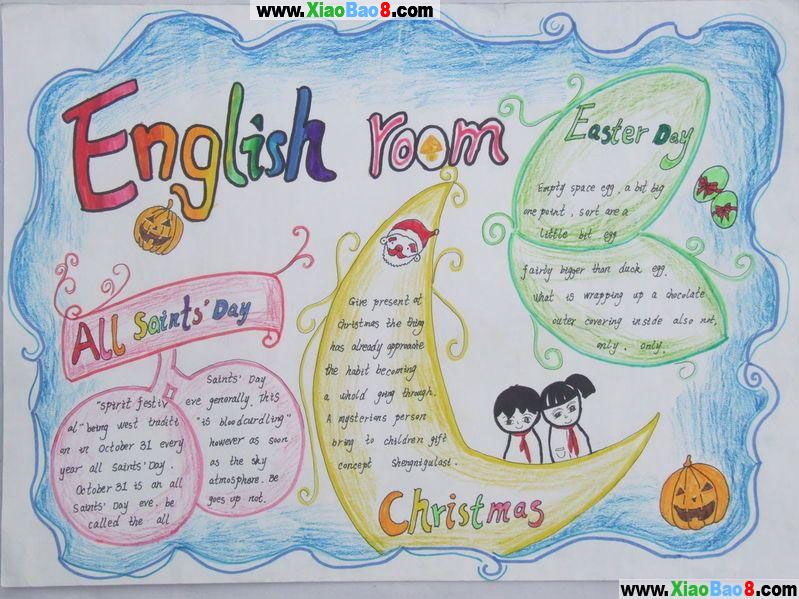 www.XiaoBao8.com
English room
Easter Day
Empty space egg, a bit big
one point, sort are a
little bit egg
fairly bigger than duck egg.
What is wrapping up a chocolate
outer covering inside also not,
only. only.
All Saints' Day
"Spirit festiv
al" being west traditi
on in October 31 every
year all Saints' Day.
October 31 is an all
Saints' Day eve. be
called the all
Saints' Day
eve generally. This
"is bloodcurdling"
however as soon
as the sky
atmosphere. Be
goes up not.
Give present at
Christmas the thing
has already approache
the habit becoming
a whold going through.
A mysterians person
bring to children gift
concept Shengnigulasi.
Christmas
www.XiaoBao8.com